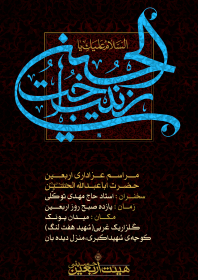 السلام علیک یا
اخت الحسین
زینب
مراسم عزاداری اربعین
حضرت اباعبدالله الحسین
سخنران : استاد حاج مهدی توکلی
زمان : یازده صبح روز اربعین
مکان : میدان پونک
گلزار یک غربی (شهید هفت لنگ)
کوچه‌ی شهید اکبری، منزل دیده بان
هیئت اربعین